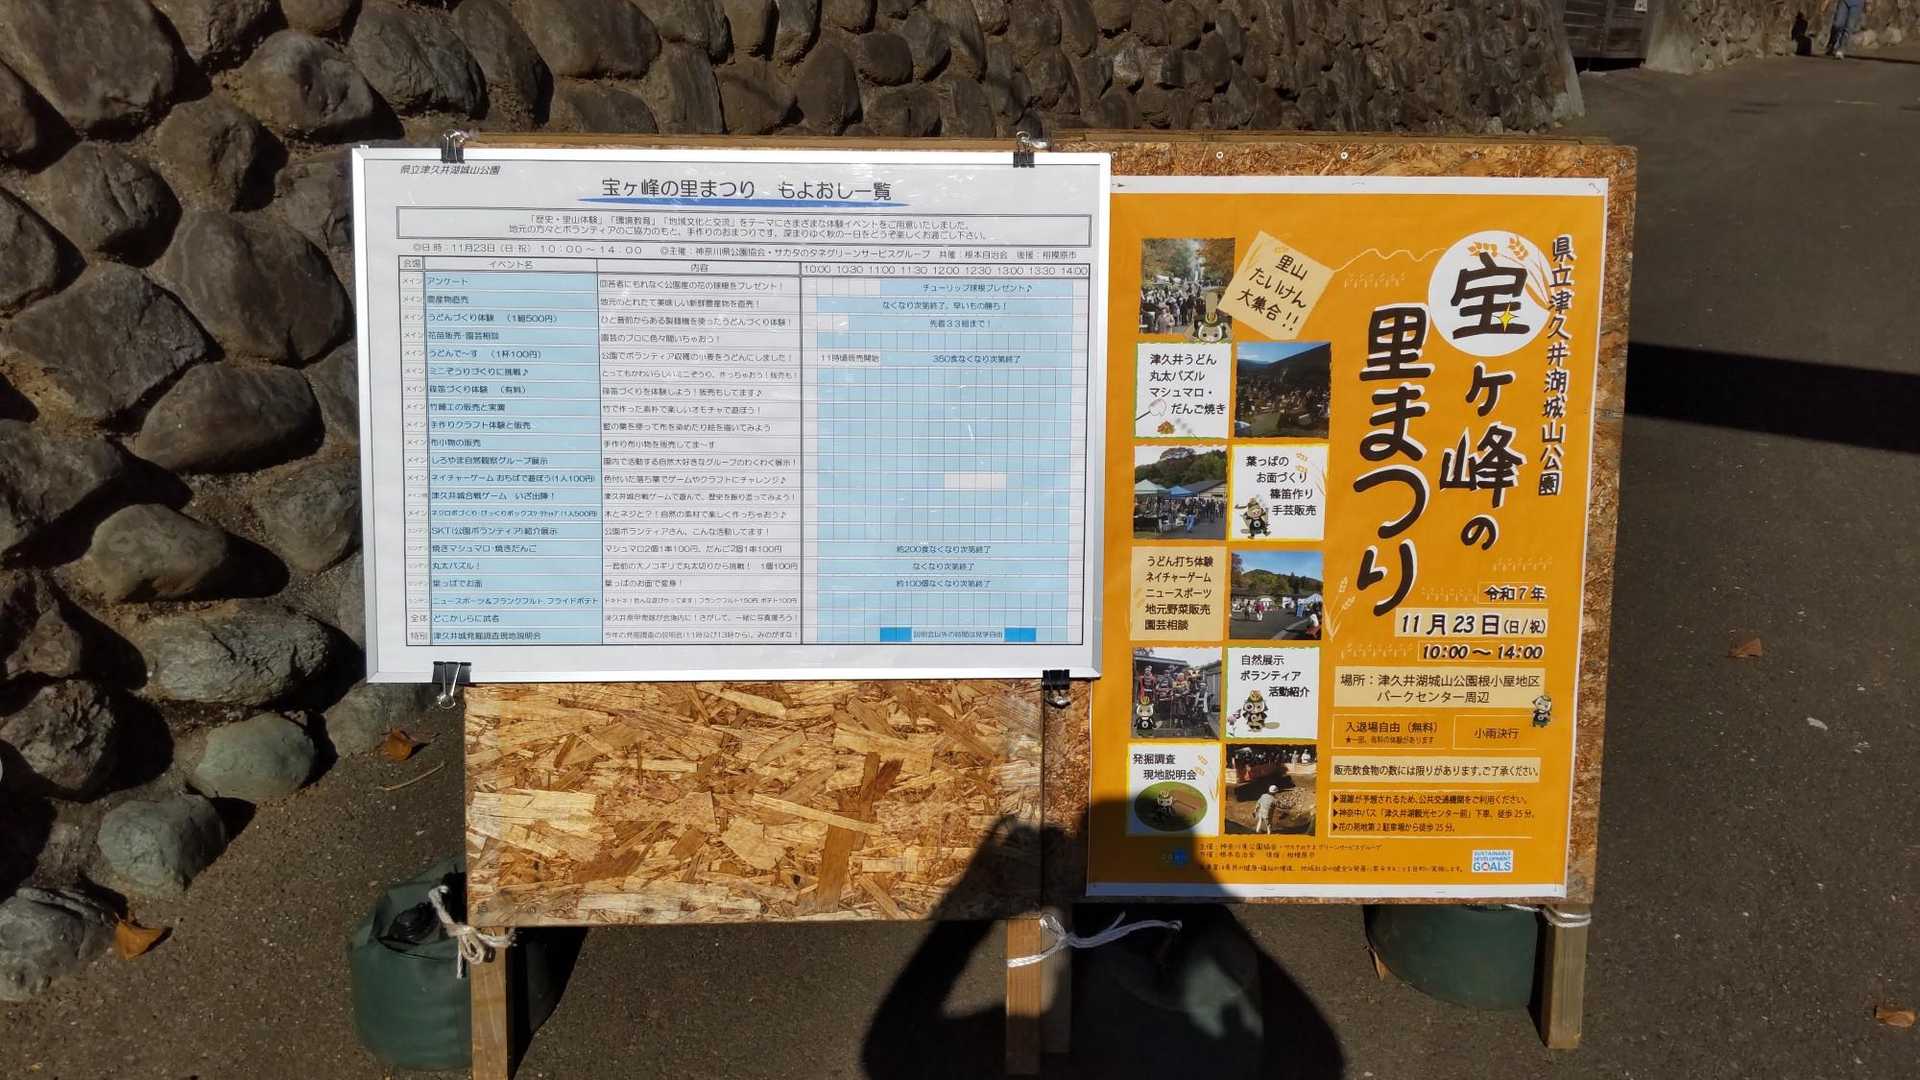 県立津久井湖城山公園
宝ヶ峰の里まつり もよおし一覧
「歴史・里山体験」「環境教育」「地域文化と交流」をテーマにさまざまな体験イベントをご用意いたしました。
地元の方々とボランティアのご協力のもと、手作りのおまつりです。深まりゆく秋の一日をどうぞ楽しくお過ごし下さい。
◎日 時：11月23日（日・祝） 10：00～14：00 ◎主催：神奈川県公園協会・サカタのタネグリーンサービスグループ 共催：根本自治会 後援：相模原市
会場 イベント名 内容 10:00 10:30 11:00 11:30 12:00 12:30 13:00 13:30 14:00
メイン アンケート 回答者にもれなく公園産の花の球根をプレゼント！ チューリップ球根プレゼント♪
メイン 農産物直売 地元のとれたて美味しい新鮮農産物を直売！ なくなり次第終了、早いもの勝ち！
メイン うどんづくり体験 （1組500円） ひと昔前からある製麺機を使ったうどんづくり体験！ 先着33組まで！
メイン 花苗販売・園芸相談 園芸のプロに色々聞いちゃおう！
メイン うどんで～す （1杯100円） 公園でボランティア収穫の小麦をうどんにしました！ 11時頃販売開始 350食なくなり次第終了
メイン ミニぞうりづくりに挑戦♪ とってもかわいらしいミニぞうり、作っちゃおう！販売も！
メイン 篠笛づくり体験 （有料） 篠笛づくりを体験しよう！販売もしてます♪
メイン 竹細工の販売と実演 竹で作った素朴で楽しいオモチャで遊ぼう！
メイン 手作りクラフト体験と販売 藍の葉を使って布を染めたり絵を描いてみよう
メイン 布小物の販売 手作り布小物を販売してま～す
メイン しろやま自然観察グループ展示 園内で活動する自然大好きなグループのわくわく展示！
メイン ネイチャーゲーム おちばで遊ぼう（1人100円） 色付いた落ち葉でゲームやクラフトにチャレンジ♪
津久井城合戦ゲーム いざ出陣！ 津久井城合戦ゲームで遊んで、歴史を振り返ってみよう！
メイン 木とネジと？！自然の素材で楽しく作っちゃおう♪
SKT（公園ボランティア）紹介展示 公園ボランティアさん、こんな活動してます！
焼きマシュマロ・焼きだんご マシュマロ2個1本100円、だんご2個1本100円 約200食なくなり次第終了
丸太パズル！ 一昔前の大ノコギリで丸太切りから挑戦！ 1個100円 なくなり次第終了
葉っぱでお面 葉っぱのお面で変身！ 約100個なくなり次第終了
ニュースポーツ＆フランクフルト、フライドポテト
全体 どこかしらに武者 津久井泉甲冑隊が会場内に！さがして、一緒に写真撮ろう！
特別 津久井城発掘調査現地説明会 今年の発掘調査の説明会！11時及び13時から。みのがすな！ 説明会以外の時間は見学自由
県立津久井湖城山公園
宝ヶ峰の
里まつり
里山
たいけん
大集合！！
津久井うどん
丸太パズル
マシュマロ・
だんご焼き
葉っぱの
お面づくり
篠笛作り
手芸販売
うどん打ち体験
ネイチャーゲーム
ニュースポーツ
地元野菜販売
園芸相談
自然展示
ボランティア
活動紹介
発掘調査
現地説明会
令和7年
11月23日(日/祝)
10:00～14:00
場所：津久井湖城山公園根小屋地区
パークセンター周辺
入退場自由（無料）
★一部、有料の体験があります
小雨決行
販売飲食物の数には限りがあります。ご了承ください。
▶混雑が予想されるため、公共交通機関をご利用ください。
▶神奈中バス「津久井湖観光センター前」下車、徒歩25分。
▶花の苑地第2駐車場から徒歩25分。
主催：神奈川県公園協会・サカタのタネグリーンサービスグループ
共催：根本自治会 後援：相模原市
SUSTAINABLE
DEVELOPMENT
GOALS